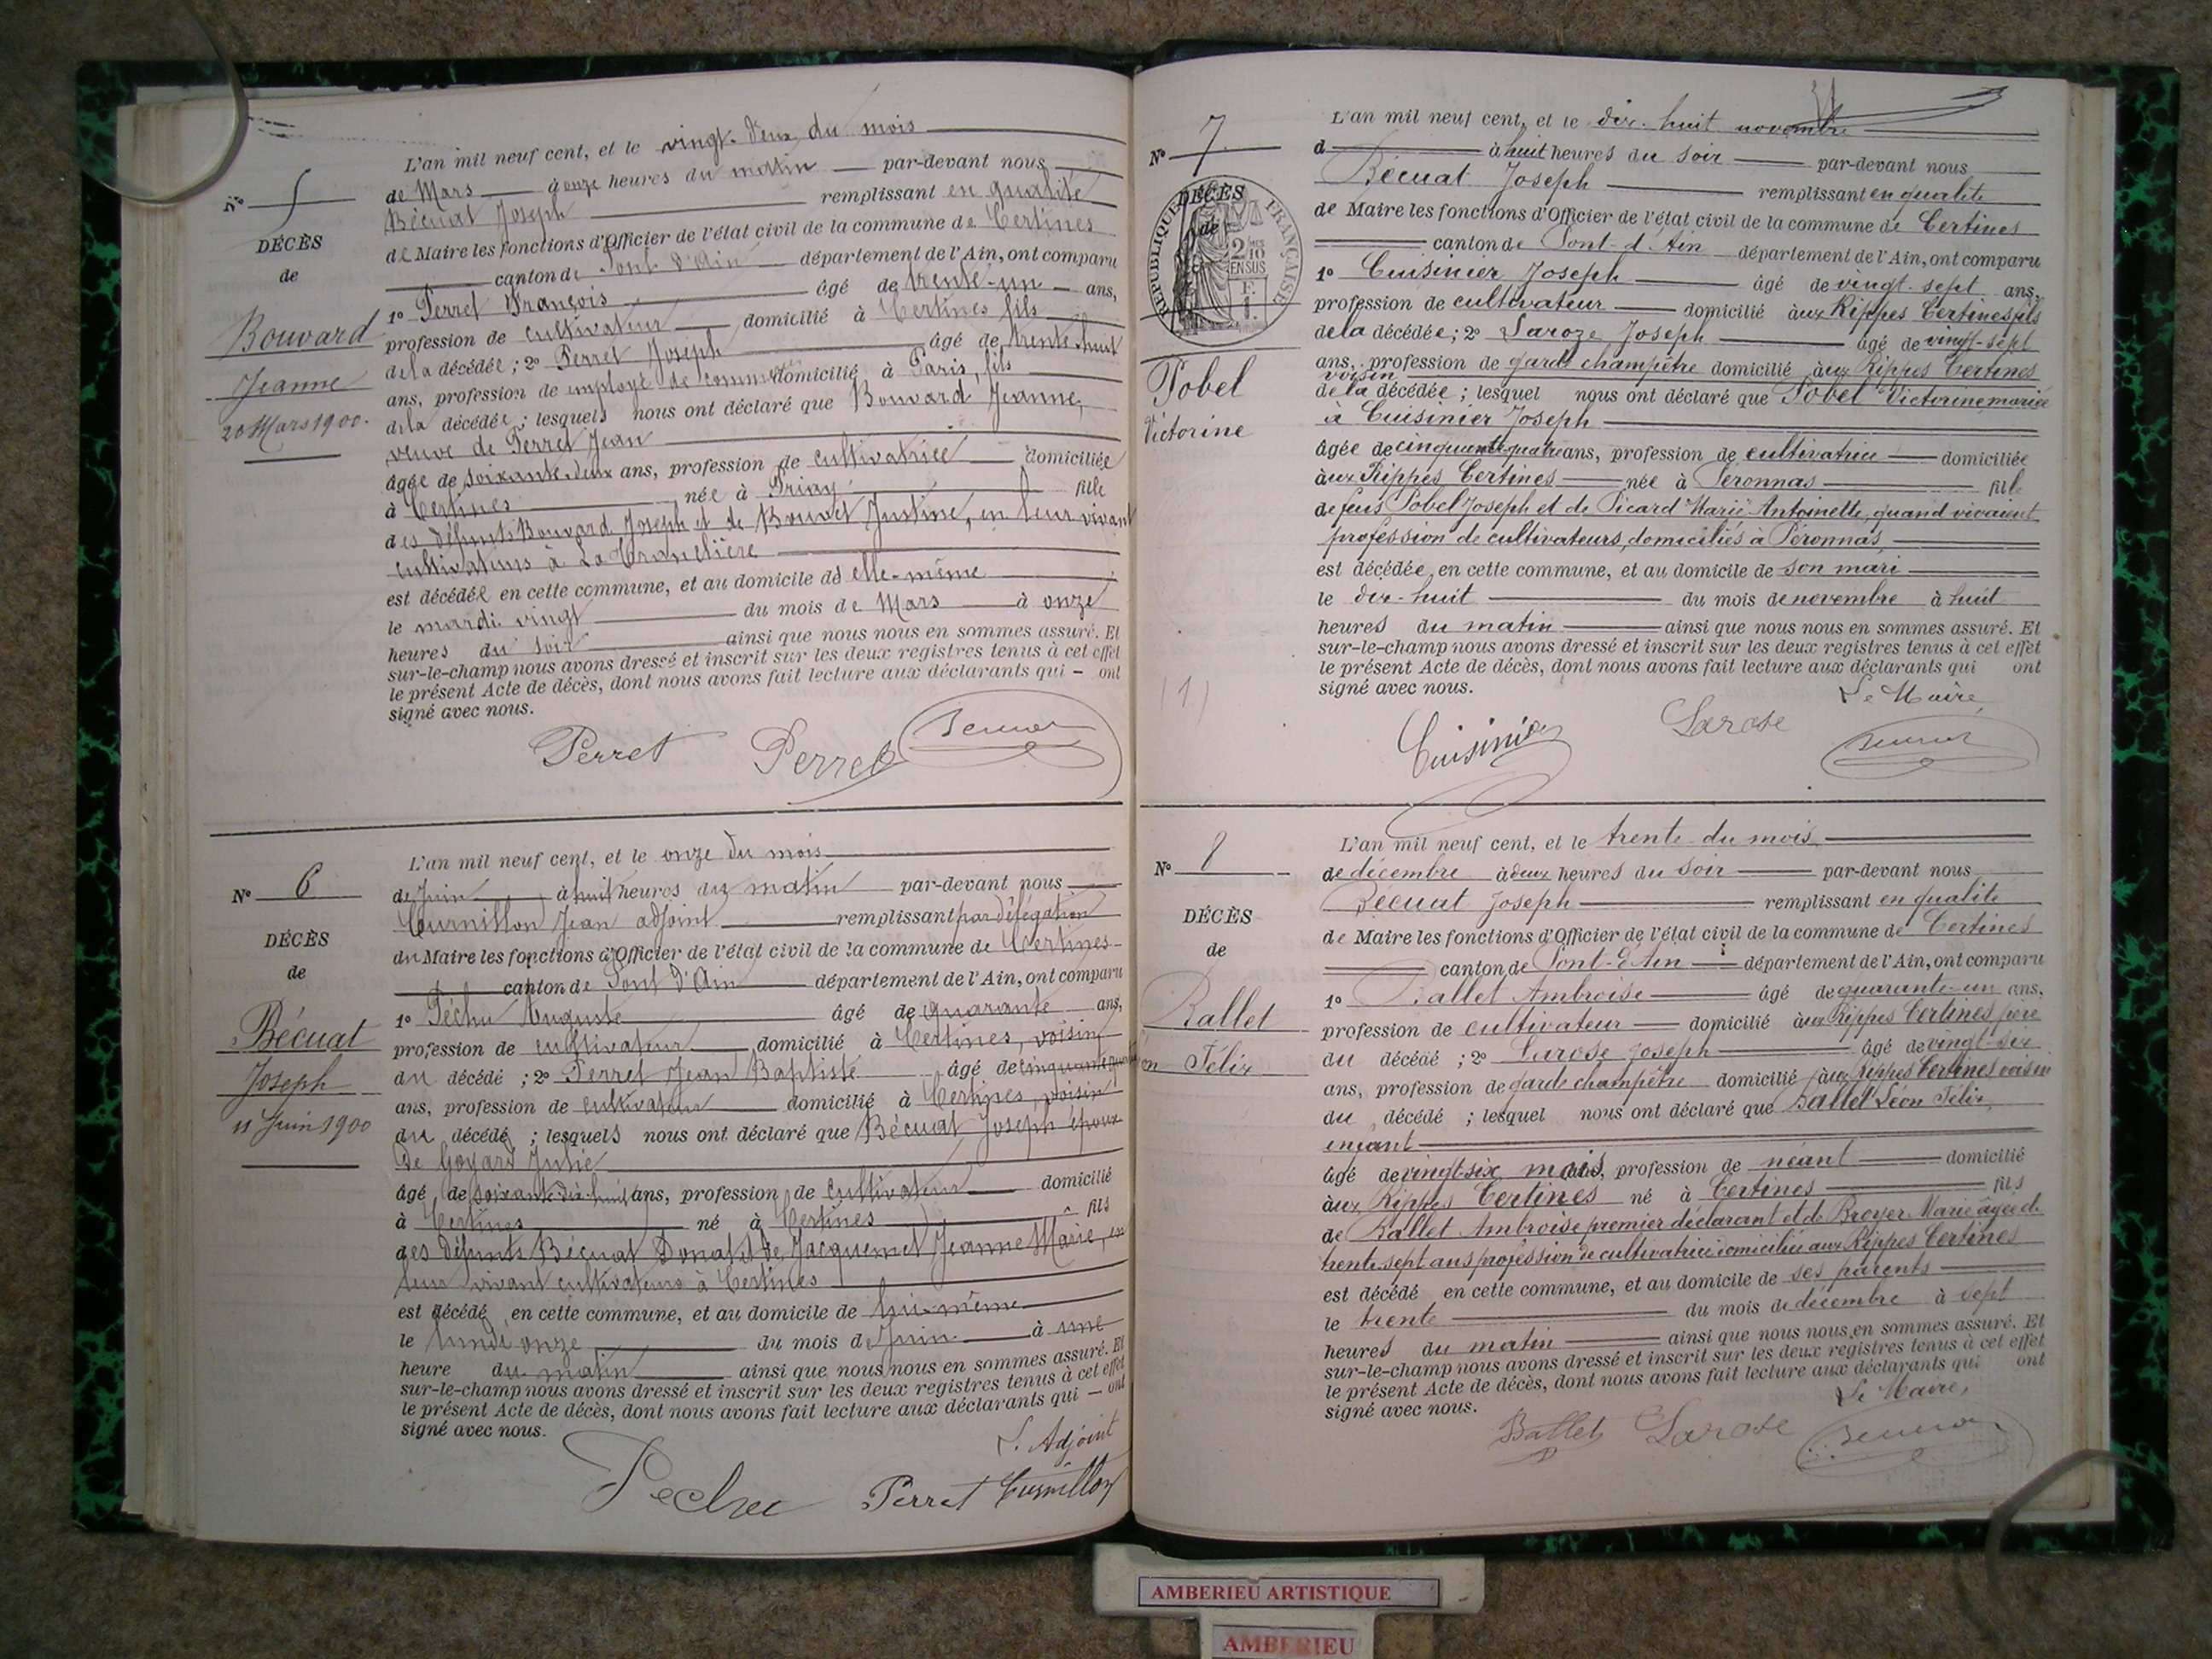 L'an mil neuf cent, et le vingt-deux du mois
de Mars à onze heures du matin par-devant nous
Bécuat Joseph remplissant en qualité
de Maire les fonctions d'Officier de l'état civil de la commune de Certines
canton de Pont d'Ain département de l'Ain, ont comparu
1º Perret François âgé de trente-un ans,
profession de cultivateur domicilié à Certines fils
de la décédée ; 2º Perret Joseph âgé de trente-huit
ans, profession de employé de commerce domicilié à Paris, fils
de la décédée ; lesquels nous ont déclaré que Bouvard Jeanne,
veuve de Perret Jean
âgée de soixante-deux ans, profession de cultivatrice domiciliée
à Certines née à Priay fille
des défunts Bouvard Joseph et de Bouvet Justine, en leur vivant
cultivateurs à La Tranclière
est décédée en cette commune, et au domicile de elle-même
le mardi vingt du mois de Mars à onze
heures du soir ainsi que nous nous en sommes assuré. Et
sur-le-champ nous avons dressé et inscrit sur les deux registres tenus à cet effet
le présent Acte de décès, dont nous avons fait lecture aux déclarants qui – ont
signé avec nous.
Perret Perret
Nº 5
DÉCÈS
de
Bouvard
Jeanne
20 Mars 1900.
Nº 6
DÉCÈS
de
Bécuat
Joseph
11 Juin 1900
L'an mil neuf cent, et le onze du mois
de Juin à huit heures du matin par-devant nous
Curnillon Jean adjoint remplissant par délégation
du Maire les fonctions d'Officier de l'état civil de la commune de Certines
canton de Pont d'Ain département de l'Ain, ont comparu
1º Péchu Auguste âgé de quarante ans,
profession de cultivateur domicilié à Certines, voisin
du décédé ; 2º Perret Jean Baptiste âgé de cinquante
ans, profession de cultivateur domicilié à Certines, voisin
du décédé ; lesquels nous ont déclaré que Bécuat Joseph époux
de Goyard Julie
âgé de soixante-dix-huit ans, profession de cultivateur domicilié
à Certines né à Certines fils
des défunts Bécuat Donat et de Jacquemet Jeanne Marie, en
leur vivant cultivateurs à Certines
est décédé en cette commune, et au domicile de lui-même
le lundi onze du mois de Juin à une
heure du matin ainsi que nous nous en sommes assuré. Et
sur-le-champ nous avons dressé et inscrit sur les deux registres tenus à cet effet
le présent Acte de décès, dont nous avons fait lecture aux déclarants qui – ont
signé avec nous.
L'Adjoint
Pechu Perret Curnillon
Nº 7
DÉCÈS
de
RÉPUBLIQUE FRANÇAISE
2 MES
10
EN SUS
Pobel
Victorine
(1)
L'an mil neuf cent, et le dix-huit novembre
d à huit heures du soir par-devant nous
Bécuat Joseph remplissant en qualité
de Maire les fonctions d'Officier de l'état civil de la commune de Certines
canton de Pont-d'Ain département de l'Ain, ont comparu
1º Cuisinier Joseph âgé de vingt-sept ans,
profession de cultivateur domicilié aux Rippes Certines fils
de la décédée ; 2º Laroze Joseph âgé de vingt-sept
ans, profession de garde champêtre domicilié aux Rippes Certines
voisin
de la décédée ; lesquel nous ont déclaré que Pobel Victorine mariée
à Cuisinier Joseph
âgée de cinquante quatre ans, profession de cultivatrice domiciliée
aux Rippes Certines née à Péronnas fille
de feus Pobel Joseph et de Picard Marie-Antoinette, quand vivaient
profession de cultivateurs, domiciliés à Péronnas,
est décédée en cette commune, et au domicile de son mari
le dix-huit du mois de novembre à huit
heures du matin ainsi que nous nous en sommes assuré. Et
sur-le-champ nous avons dressé et inscrit sur les deux registres tenus à cet effet
le présent Acte de décès, dont nous avons fait lecture aux déclarants qui ont
signé avec nous.
Le Maire,
Cuisinier Larose
Nº 8
DÉCÈS
de
Ballet
Félix
L'an mil neuf cent, et le trente du mois
de décembre à deux heures du soir par-devant nous
Bécuat Joseph remplissant en qualité
de Maire les fonctions d'Officier de l'état civil de la commune de Certines
canton de Pont-d'Ain département de l'Ain, ont comparu
1º Ballet Ambroise âgé de quarante-un ans,
profession de cultivateur domicilié aux Rippes Certines père
du décédé ; 2º Larose Joseph âgé de vingt-six
ans, profession de garde champêtre domicilié aux Rippes Certines voisin
du décédé ; lesquel nous ont déclaré que Ballet Léon Félix,
enfant
âgé de vingt-six mois, profession de néant domicilié
aux Rippes Certines né à Certines fils
de Ballet Ambroise premier déclarant et de Broyer Marie âgée de
trente-sept ans profession de cultivatrice domiciliée aux Rippes Certines
est décédé en cette commune, et au domicile de ses parents
le trente du mois de décembre à sept
heures du matin ainsi que nous nous en sommes assuré. Et
sur-le-champ nous avons dressé et inscrit sur les deux registres tenus à cet effet
le présent Acte de décès, dont nous avons fait lecture aux déclarants qui ont
signé avec nous.
Le Maire,
Ballet Larose
AMBERIEU ARTISTIQUE
AMBERIEU